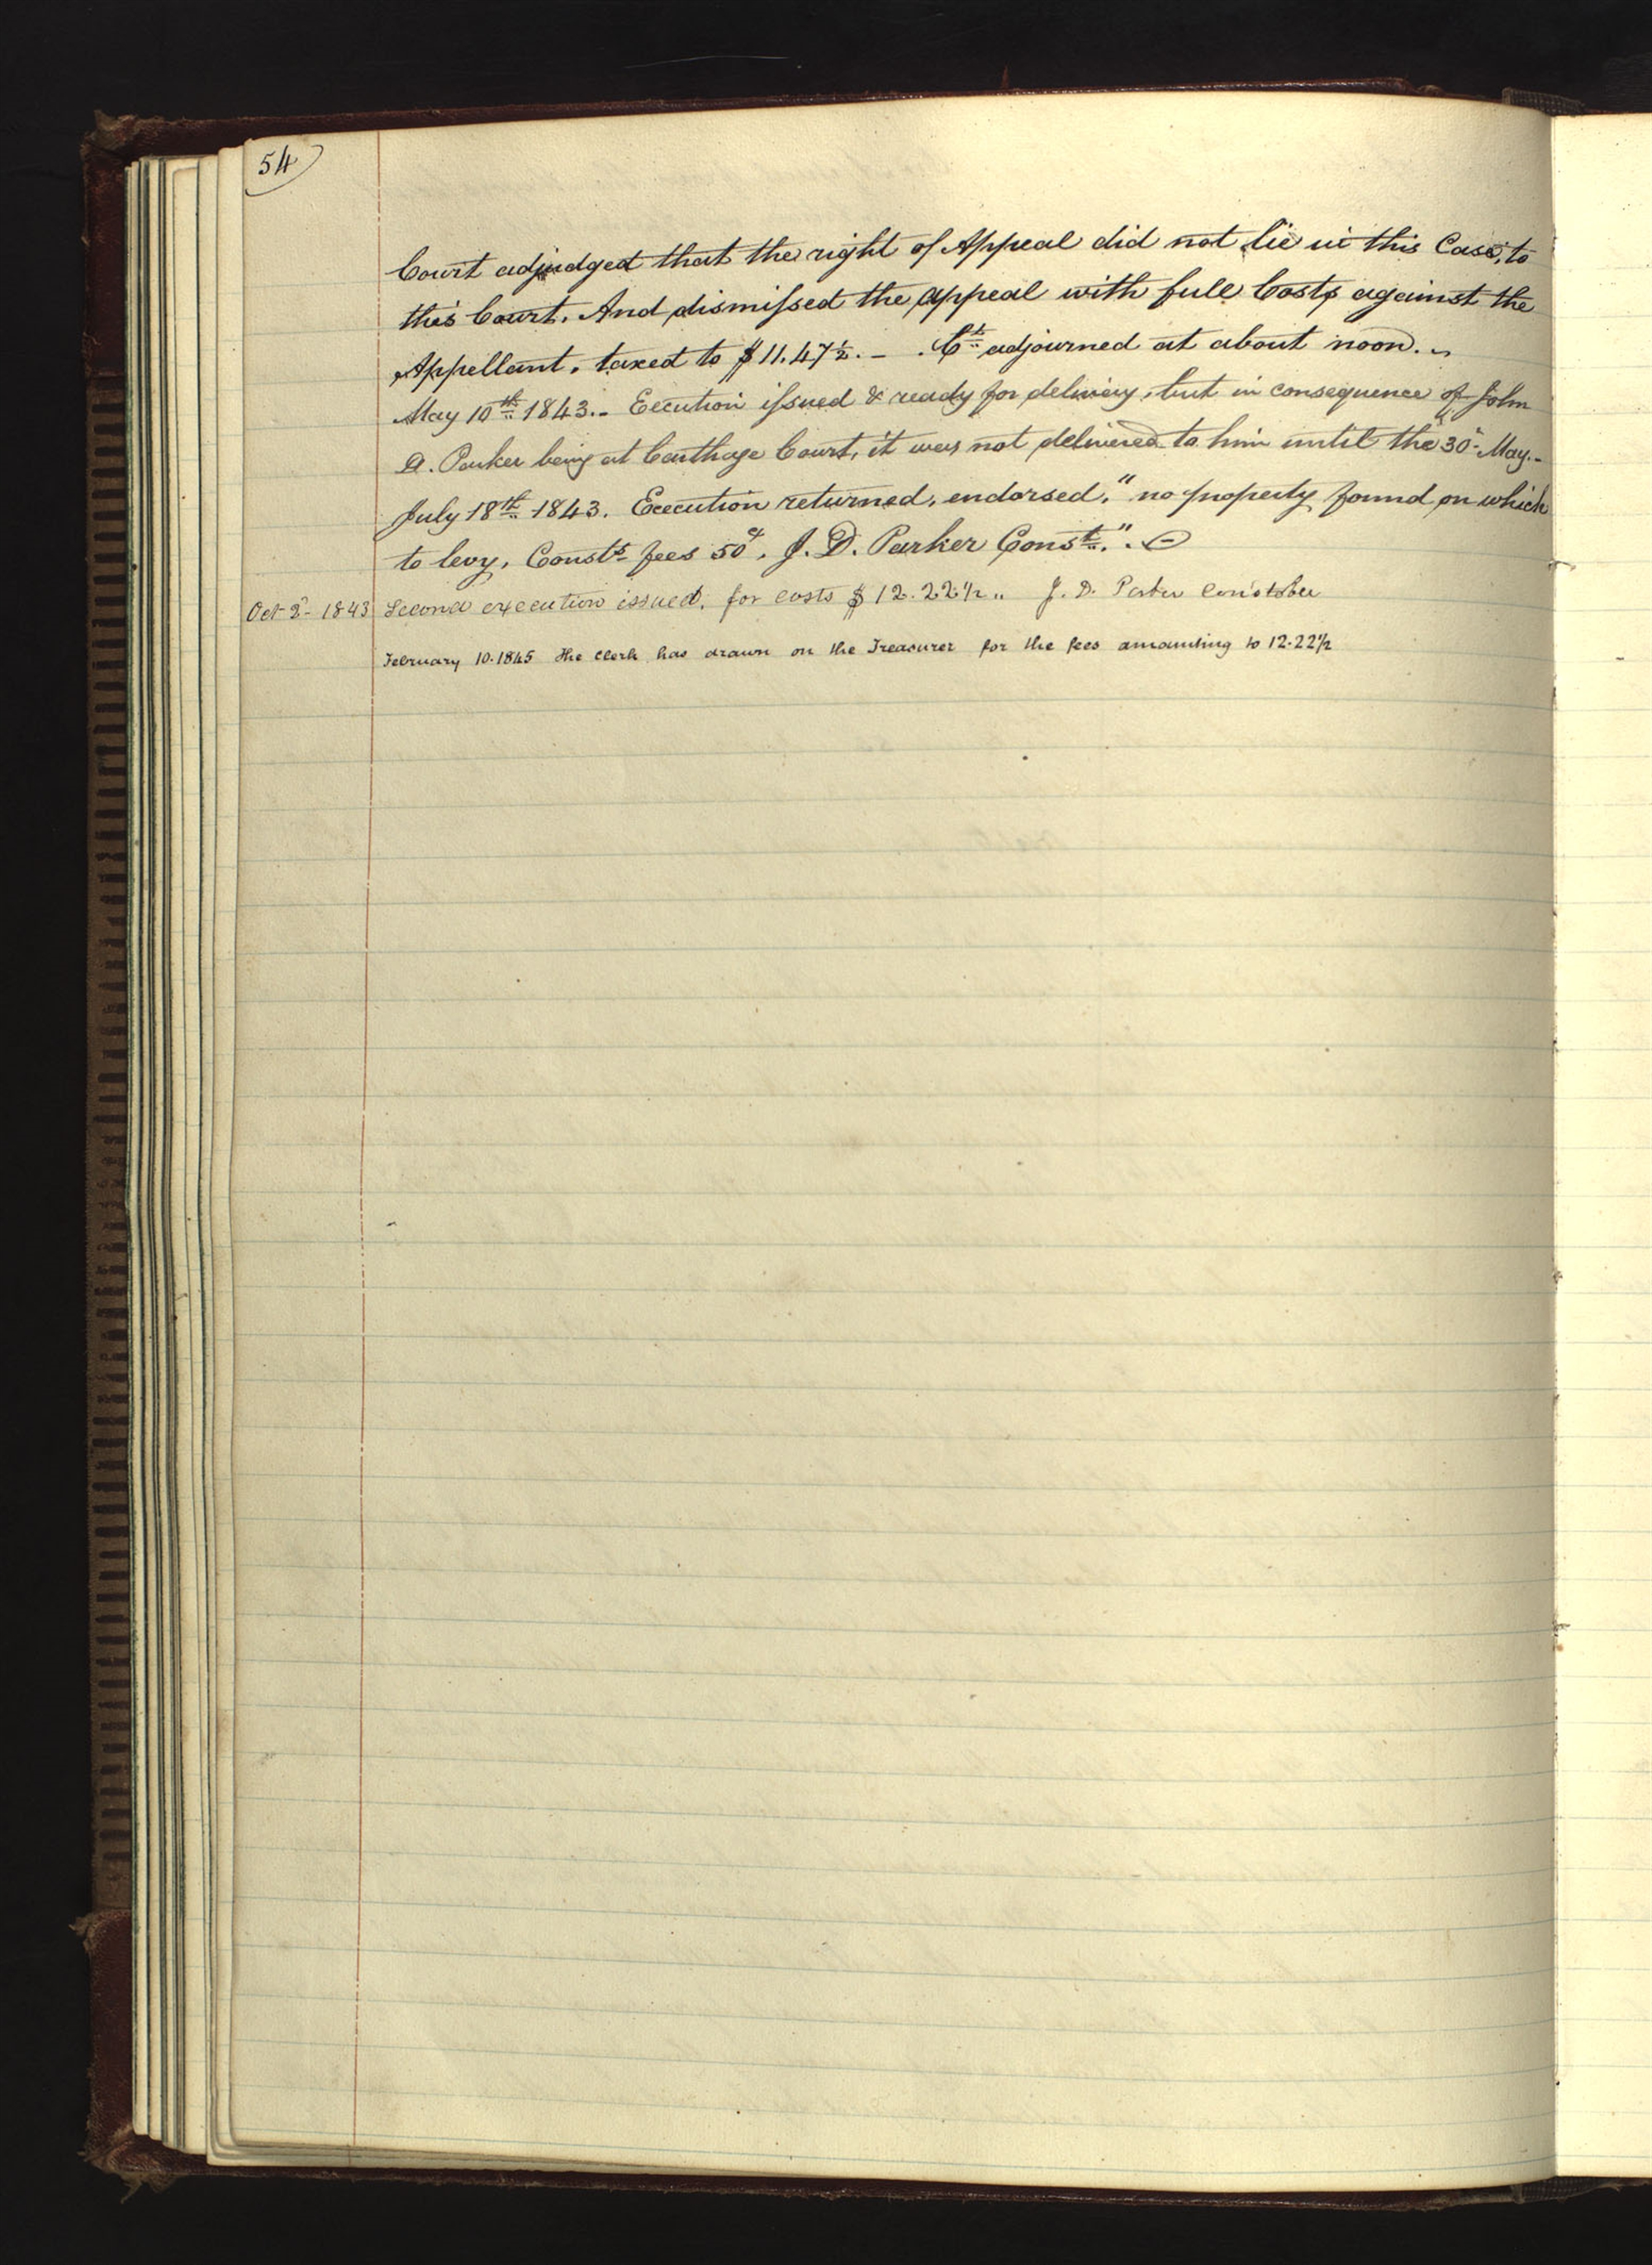 54
Court adjudged that the right of Appeal did not lie in this Case, to
this Court. And dismissed the appeal with full Costs against the
Appellant, taxed to $11.47½. — . Ct. adjourned at about noon. ~
May 10th 1843. – Execution issued & ready for delivery, but in consequence of John
D. Parker being at Carthage Court, it was not delivered to him until the 30th May. –
July 18th 1843. Execution returned, endorsed, "no property found on which
to levy, Consts fees 50¢. J. D. Parker Const."
Oct 2d 1843 Second execution issued, for costs $12.22½ " J. D. Parker Constable
February 10. 1845 The Clerk has drawn on the Treasurer for the fees amounting to 12.22½